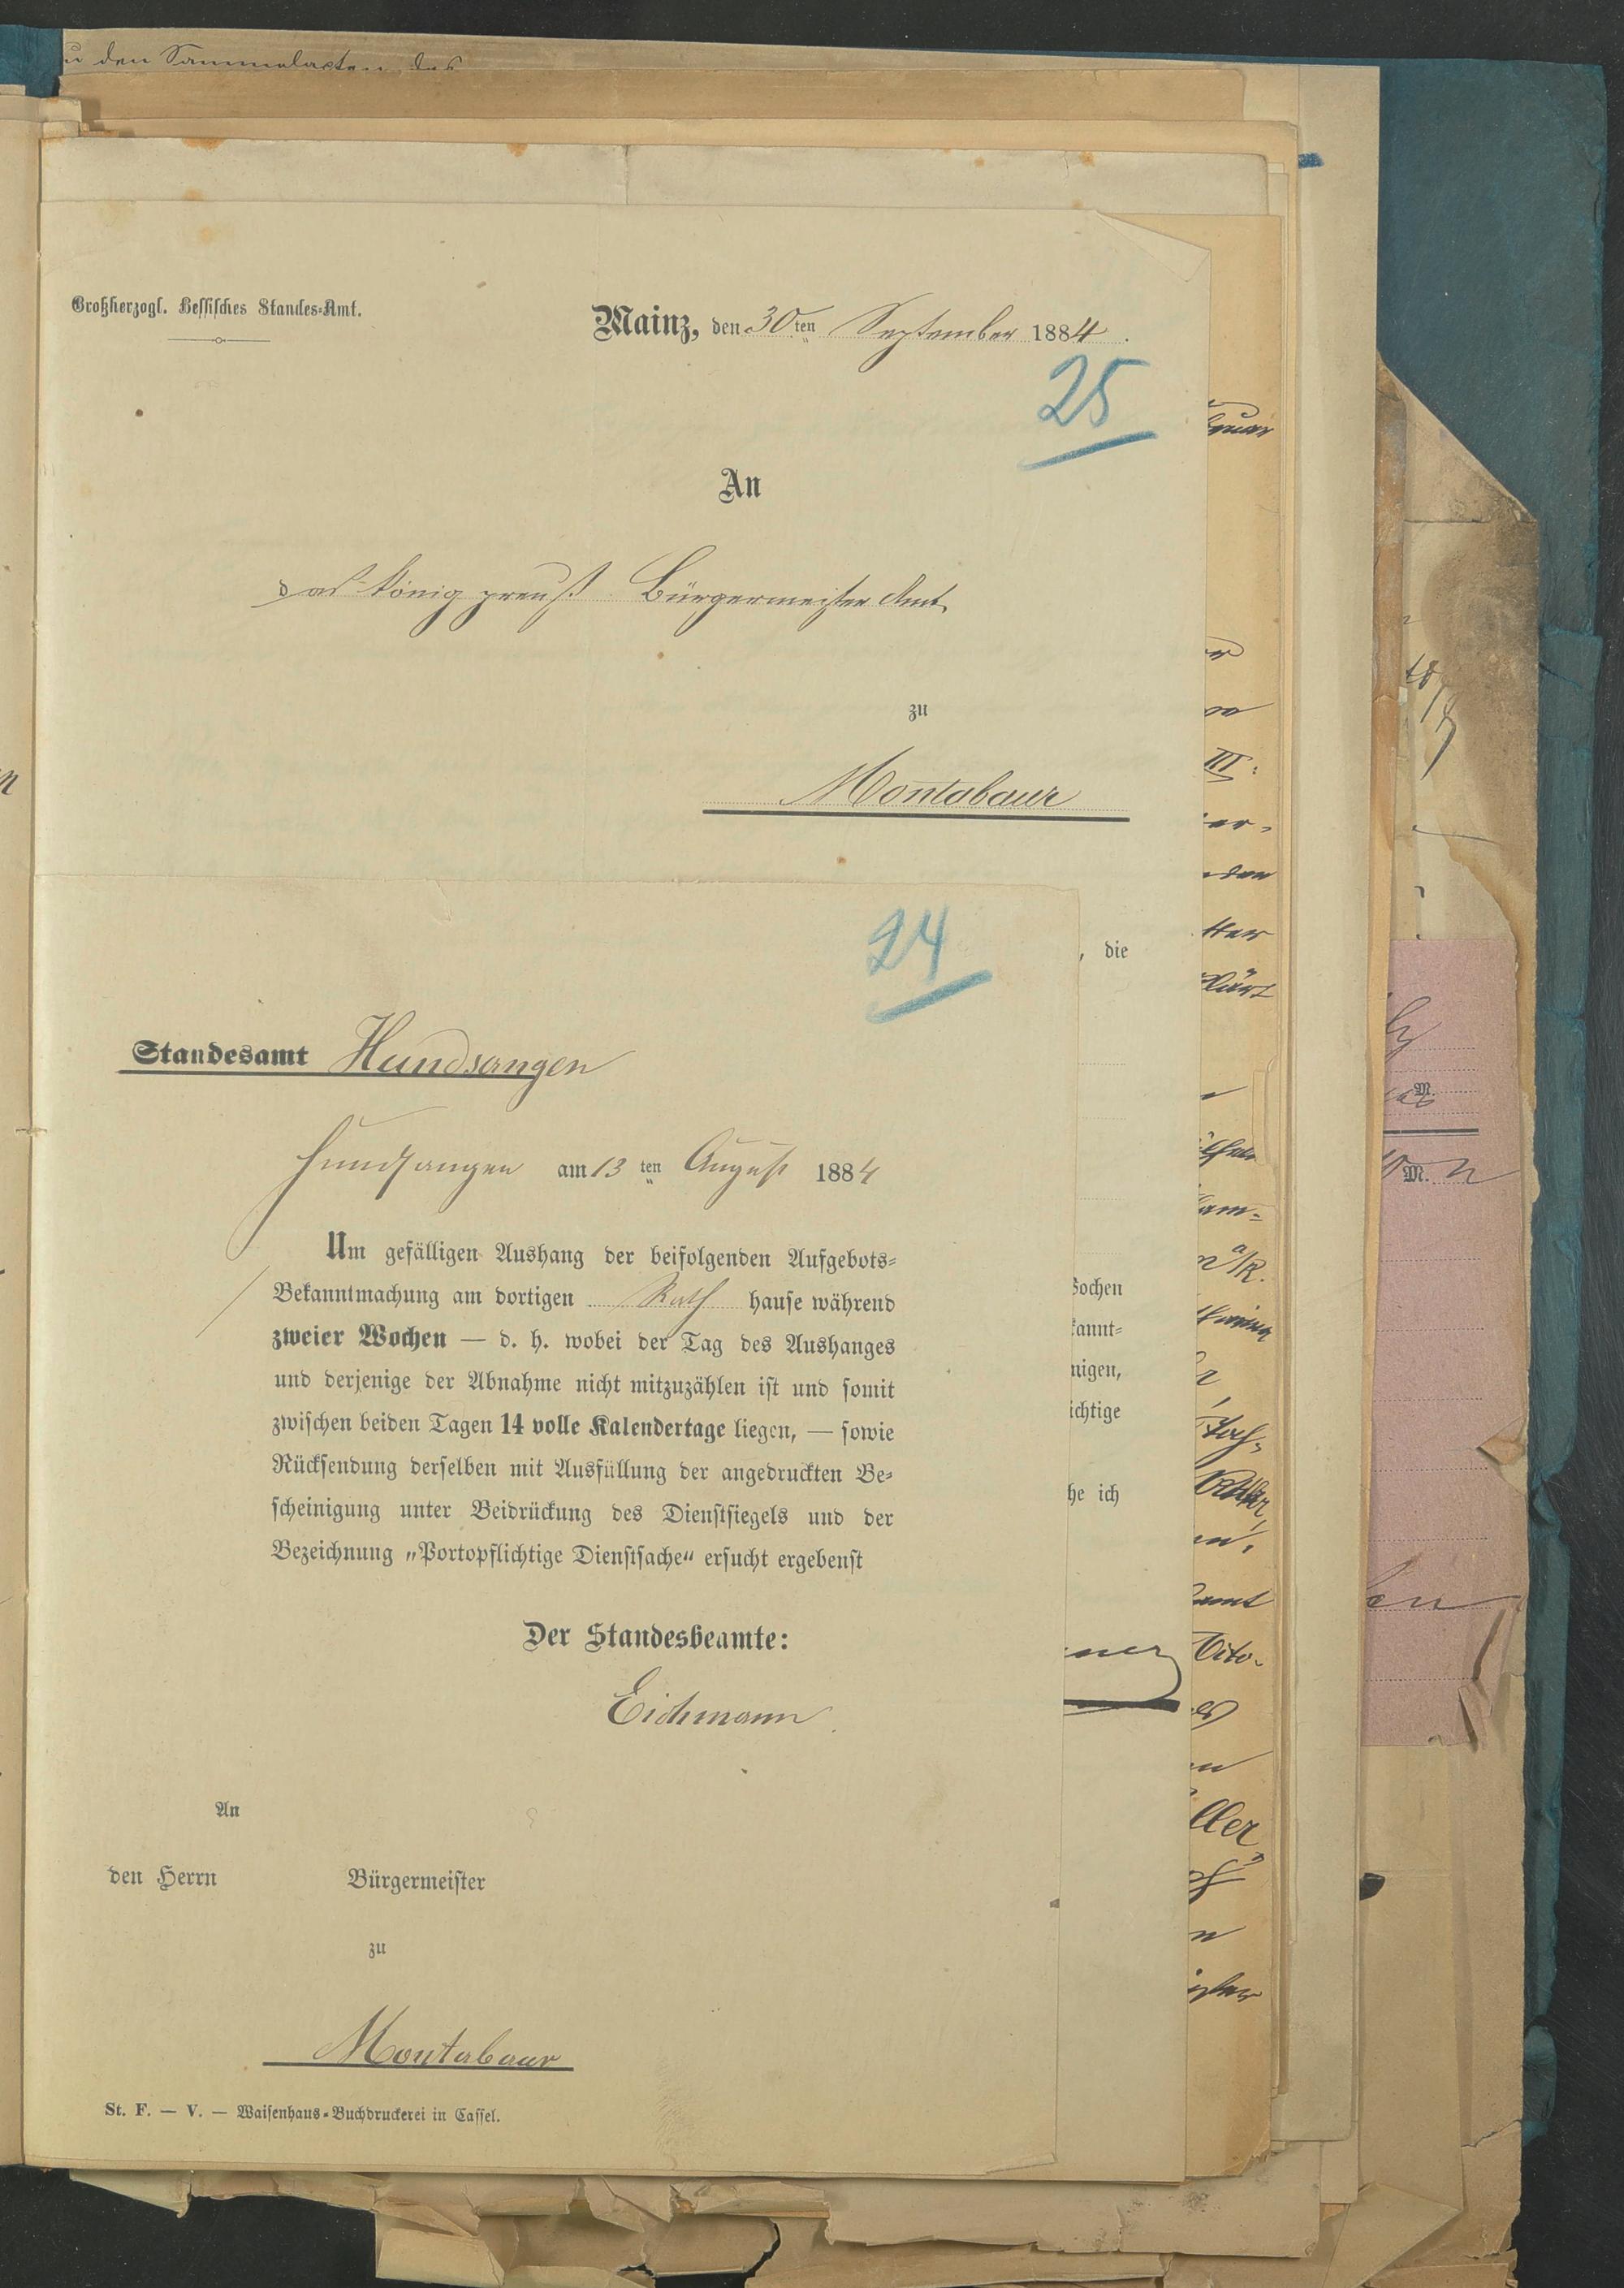 den Sammelacten des
Großherzogl. Hessisches Standes-Amt.
Mainz, den 30ten September 1884.
25
An
das König preuß Bürgermeister Amt
zu
Montabaur
, die
24
Standesamt Hundsangen
Hundsangen am 13 ten August 1884
Um gefälligen Aushang der beifolgenden Aufgebots-
Bekanntmachung am dortigen Rath hause während
zweier Wochen — d. h. wobei der Tag des Aushanges
und derjenige der Abnahme nicht mitzuzählen ist und somit
zwischen beiden Tagen 14 volle Kalendertage liegen, — sowie
Rücksendung derselben mit Ausfüllung der angedruckten Be-
scheinigung unter Beidrückung des Dienstsiegels und der
Bezeichnung „Portopflichtige Dienstsache“ ersucht ergebenst
Der Standesbeamte:
Eichmann
An
den Herrn Bürgermeister
zu
Montabaur
St. F. — V. — Waisenhaus-Buchdruckerei in Cassel.
ochen
kannt-
nigen,
ichtige
he ich
III:
M.
M.